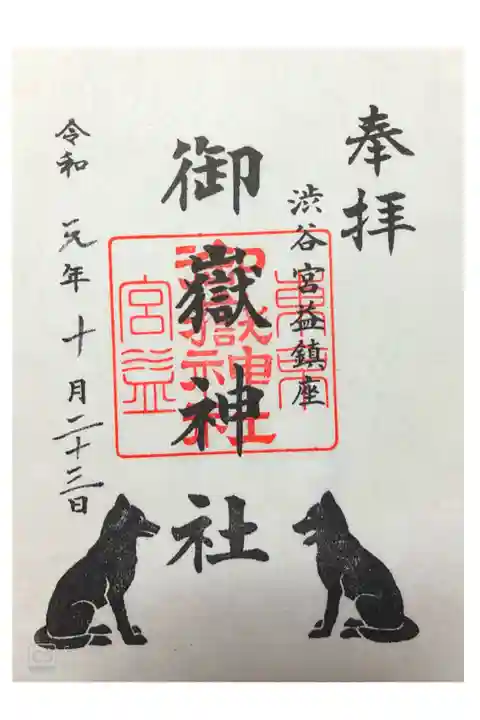 奉拝
渋谷宮益鎮座
御嶽神社
東京
御嶽神社
宮益
令和元年十月二十三日